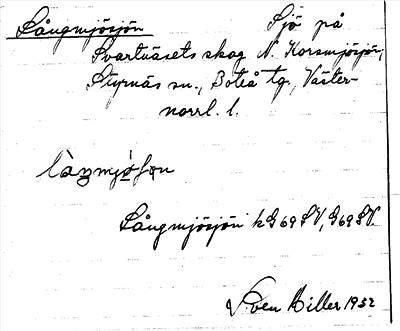 Långmjösjön Sjö på
Svartnäsets skog N. Korsmjösjön,
Styrnäs sn., Boteå tg., Väster-
norrl. l.
Långmjösjön kG69SV, G69SV.
Sven Hiller 1932